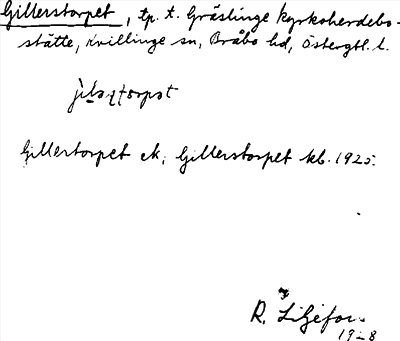 Gillerstorpet, tp. t. Gräslinge kyrkoherdebo-
ställe, Kvillinge sn, Bråbo hd, Östergtl. l.
Gillertorpet ek; Gillerstorpet kb. 1925.
R. Liljefors